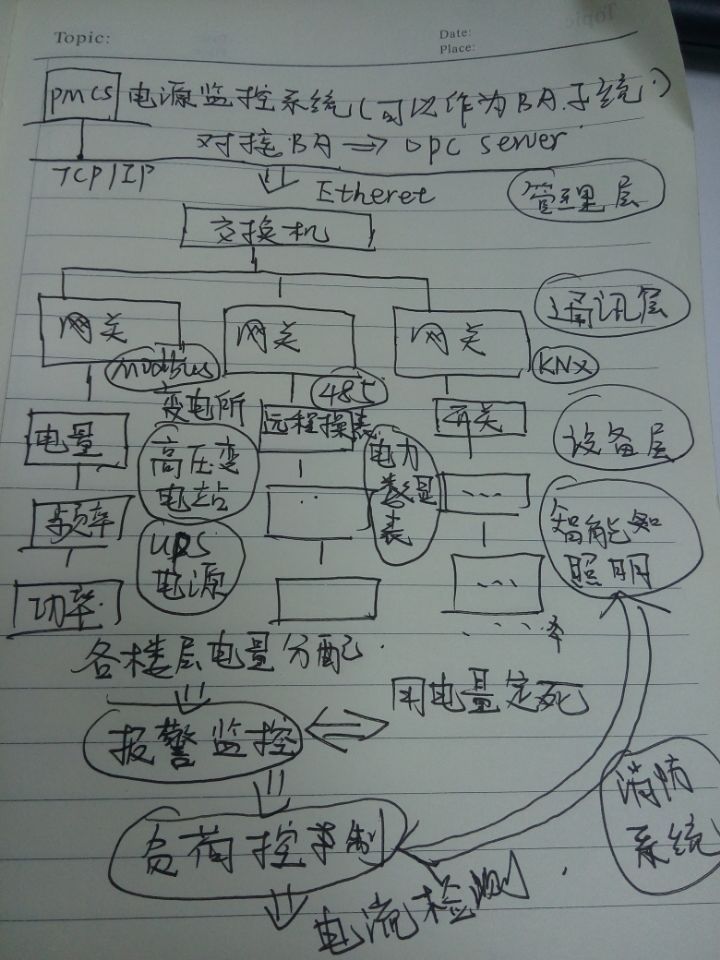 Topic:
Date:
Place:
PMCS 电源监控系统(可以作为BA子系统.)
对接BA → OPC server
TCP/IP
Etheret
管理层
交换机
通讯层
网关 网关 网关
modbus 485 KNX
变电所 远程操表 开关
电量 设备层
高压变电站
电力
表
..
...
频率
智能
照明
UPS
电源
功率
...
各楼层电量分配.
用电量定死
报警监控
消防
系统
负荷控制
电流检测.